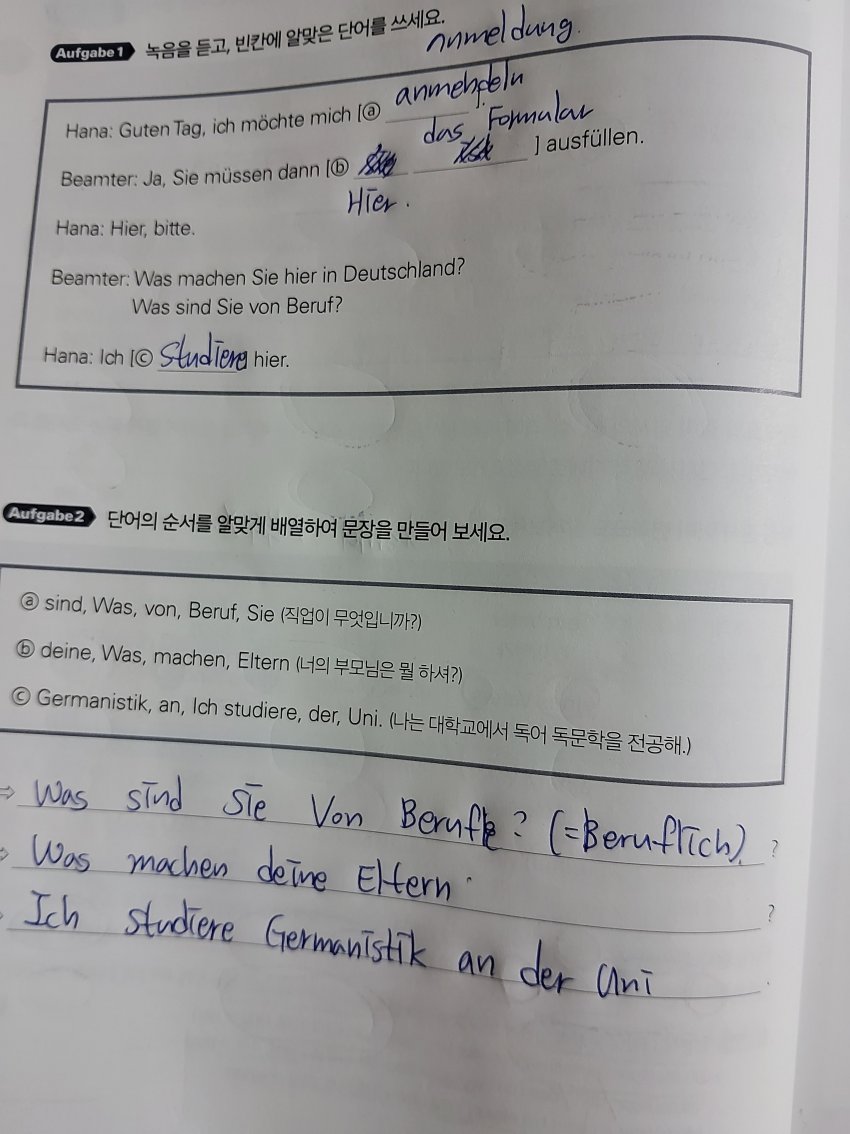 Aufgabe1 녹음을 듣고, 빈칸에 알맞은 단어를 쓰세요.
anmeldung.
anmehdeln
Hana: Guten Tag, ich möchte mich [ⓐ ].
das Formular
Beamter: Ja, Sie müssen dann [ⓑ ] ausfüllen.
Hier.
Hana: Hier, bitte.
Beamter: Was machen Sie hier in Deutschland?
Was sind Sie von Beruf?
Hana: Ich [ⓒ studiere] hier.
Aufgabe2 단어의 순서를 알맞게 배열하여 문장을 만들어 보세요.
ⓐ sind, Was, von, Beruf, Sie (직업이 무엇입니까?)
ⓑ deine, Was, machen, Eltern (너의 부모님은 뭘 하셔?)
ⓒ Germanistik, an, Ich studiere, der, Uni. (나는 대학교에서 독어 독문학을 전공해.)
⇒ Was sind Sie von Beruf? (=Beruflich) ?
⇒ Was machen deine Eltern. ?
Ich studiere Germanistik an der Uni .